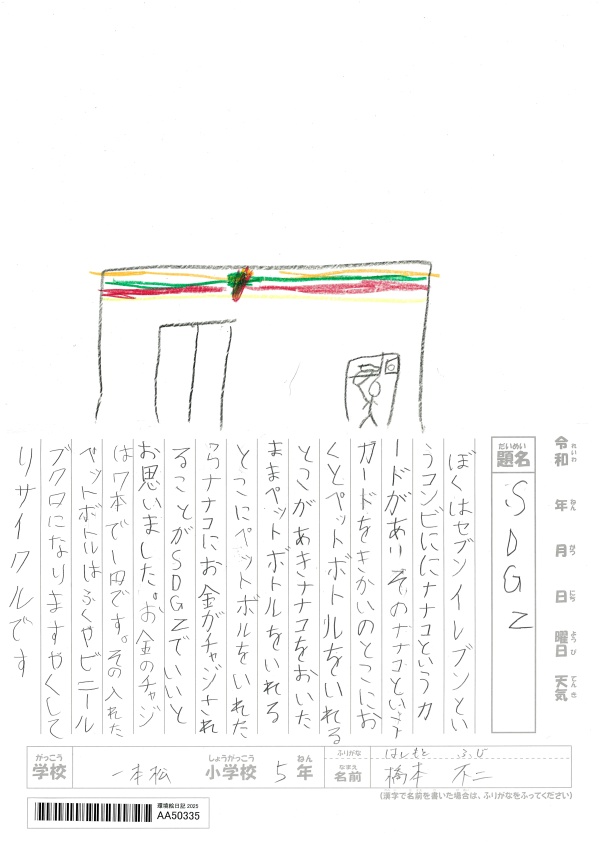 令和 年 月 日 曜日 天気
れいわ ねん がつ にち ようび てんき
だいめい
題名
SDGZ
ぼくはセブンイレブンとい
うコンビににナナコというカ
ードがあり そのナナコという
ガードをきかいのとこにお
くとペットボトルをいれる
とこがあきナナコをおいた
ままペットボトルをいれる
とこにペットボルをいれた
らナナコにお金がチャジされ
ることがSDGZでいいと
お思いました。お金のチャジ
は7本で1円です。その入れた
ペットボトルはふくやビニール
ブクロになりますやくして
リサイクルです
がっこう しょうがっこう ねん ふりがな はしもと
学校 一本松 小学校 5年 なまえ 名前 橋本 不二
(漢字で名前を書いた場合は、ふりがなをふってください)
環境絵日記 2025
AA50335